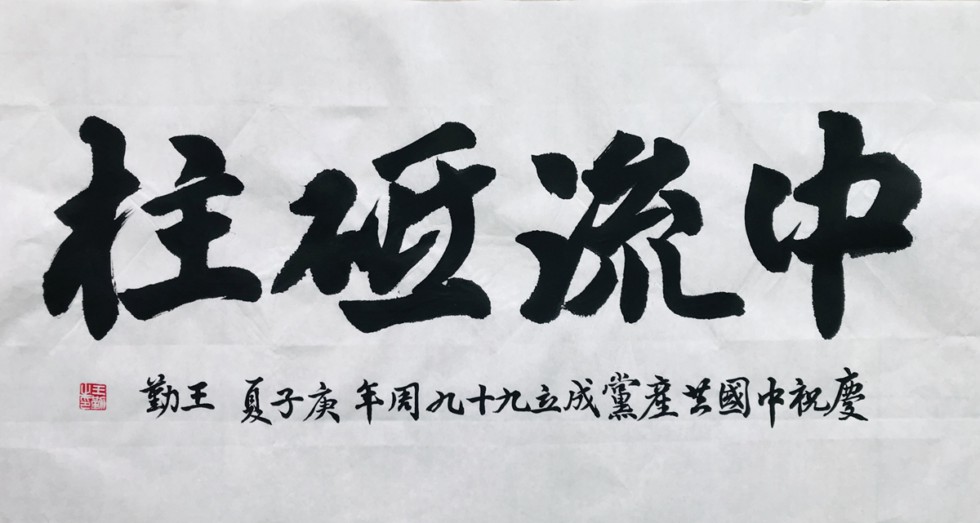 中流砥柱
慶祝中國共產黨成立九十九周年 庚子夏 王勤